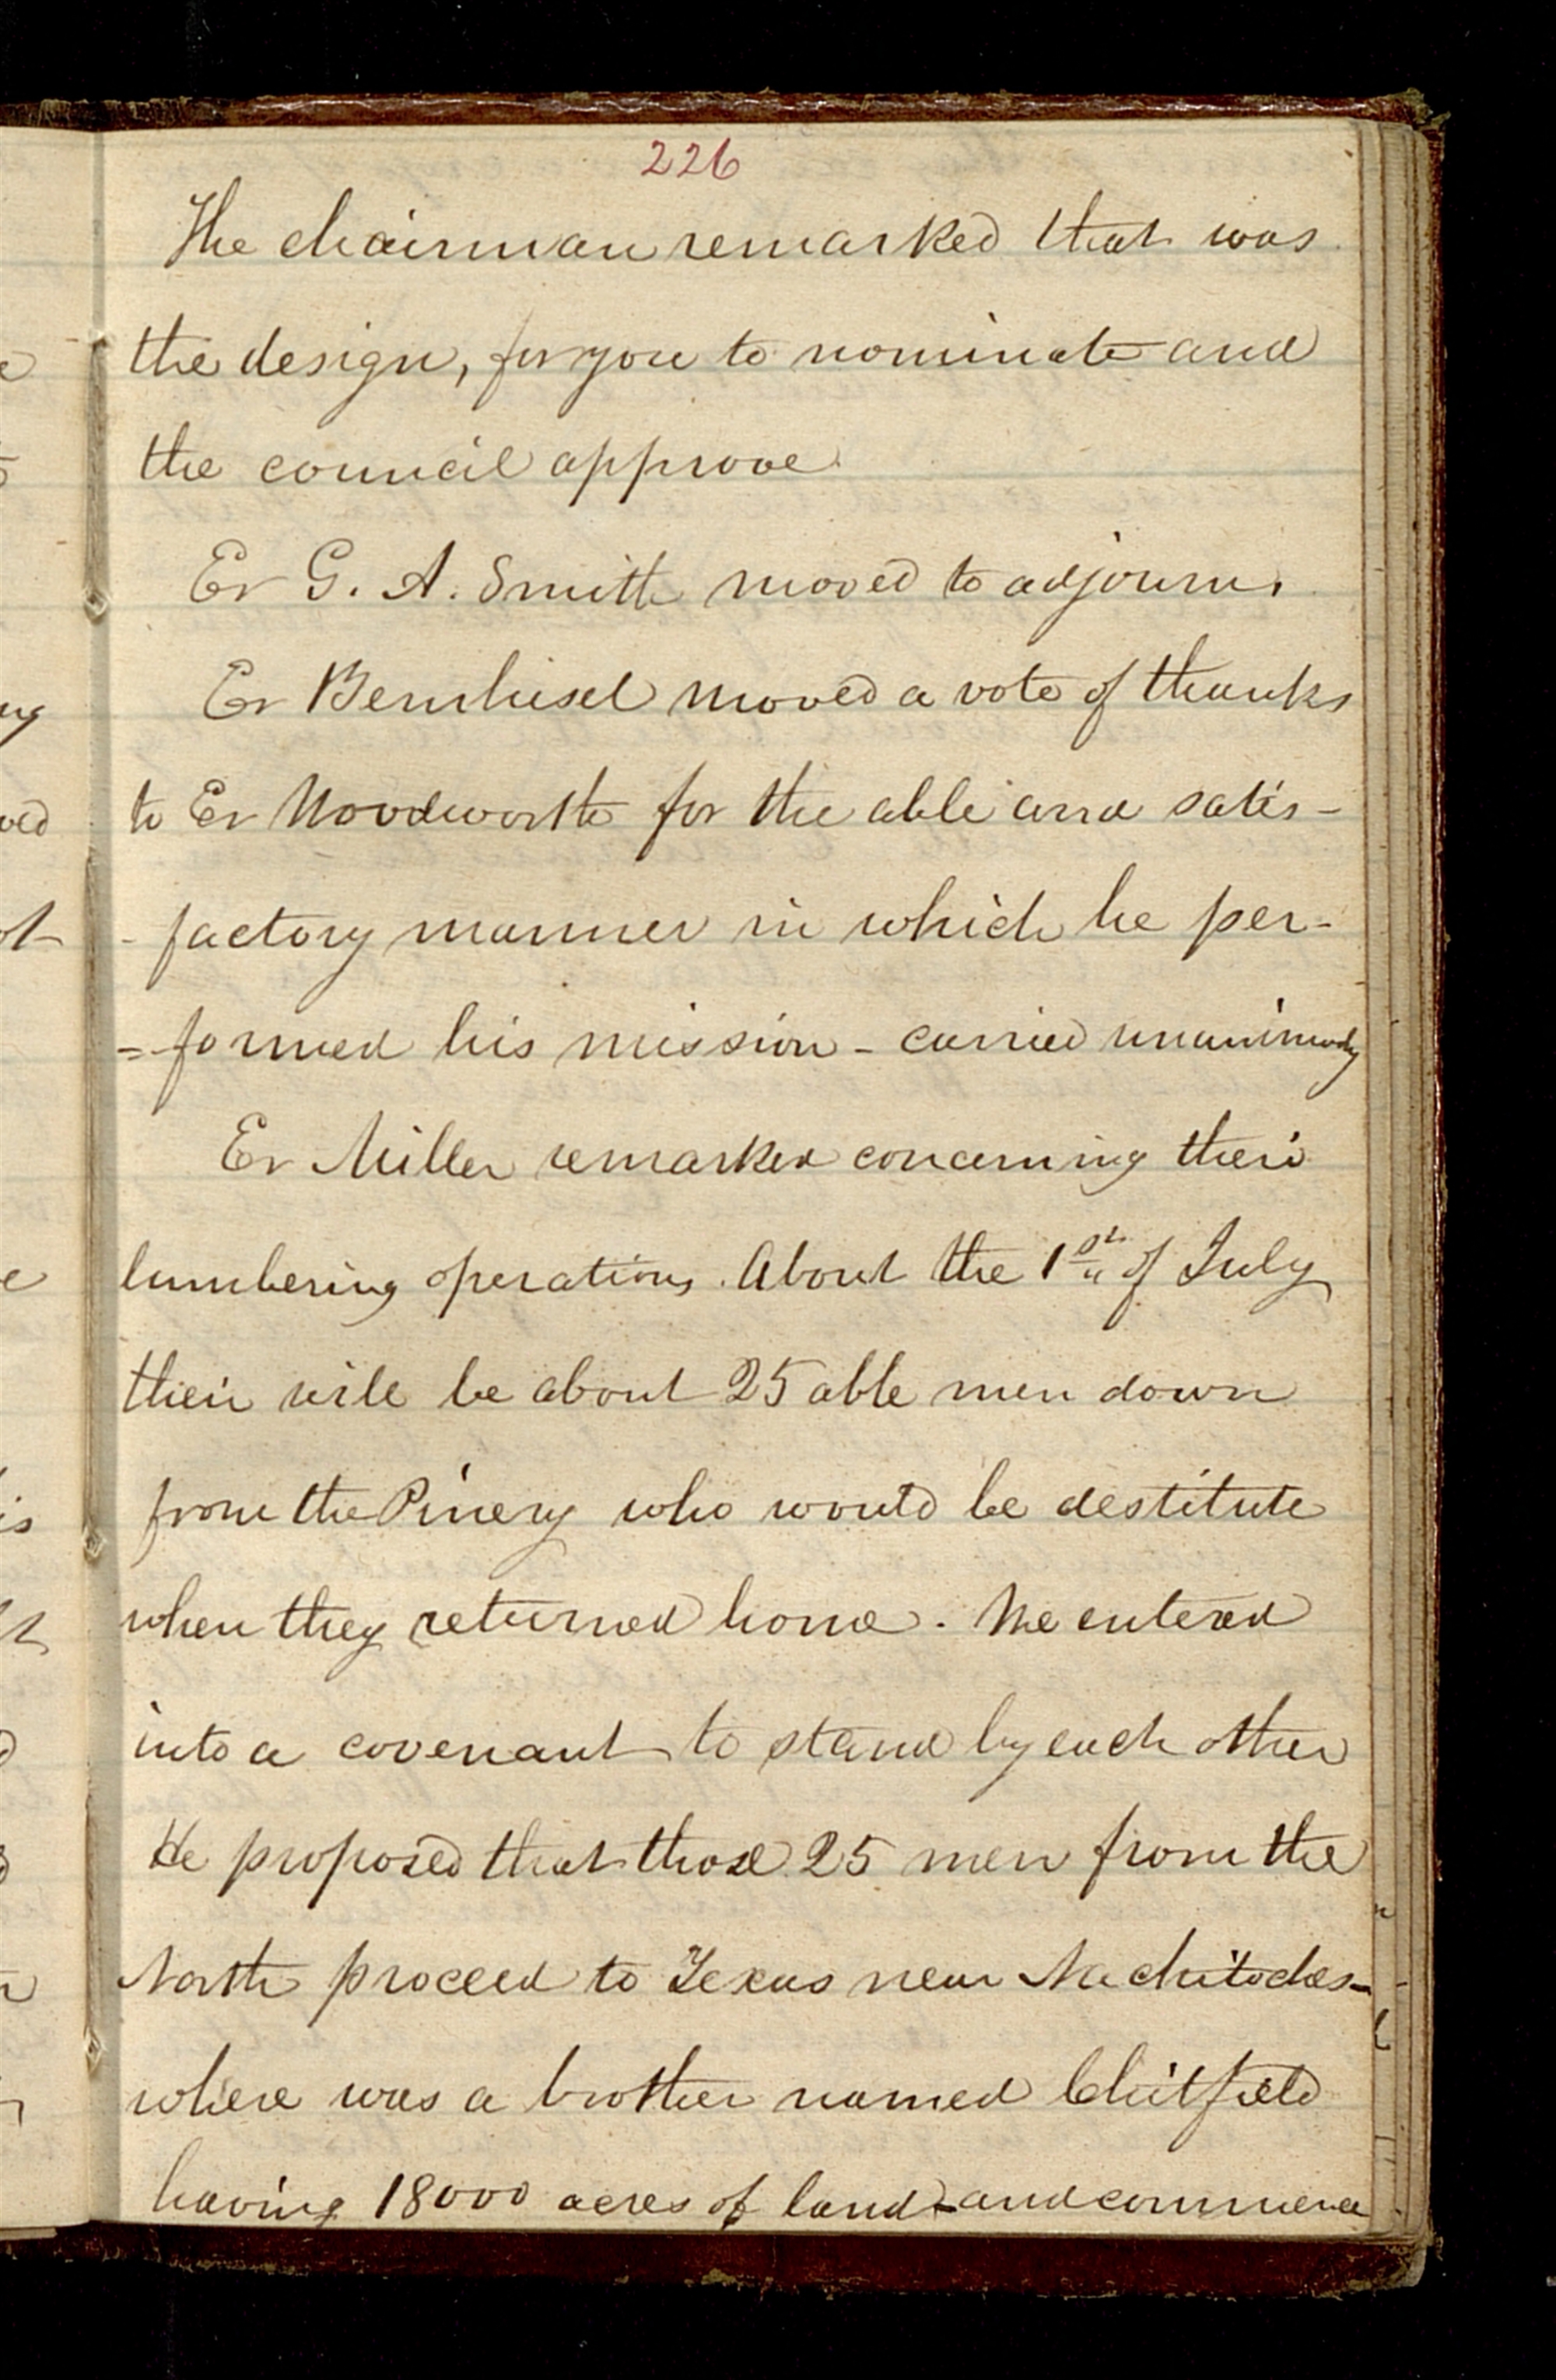 226
The chairman remarked that was
the design, for you to nominate and
the council approve.
Er G. A. Smith moved to adjourn.
Er Bernhisel moved a vote of thanks
to Er Woodworth for the able and satis-
- factory manner in which he per-
= formed his mission - carried unanimously
Er Miller remarked concerning their
lumbering operations. About the 1st of July
their will be about 25 able men down
from the Pinery who would be destitute
when they returned home. We entered
into a covenant to stand by each other
He proposed that those 25 men from the
North proceed to Texas near Nachitoches-
where was a brother named Chitfield
having 18000 acres of land - and commence